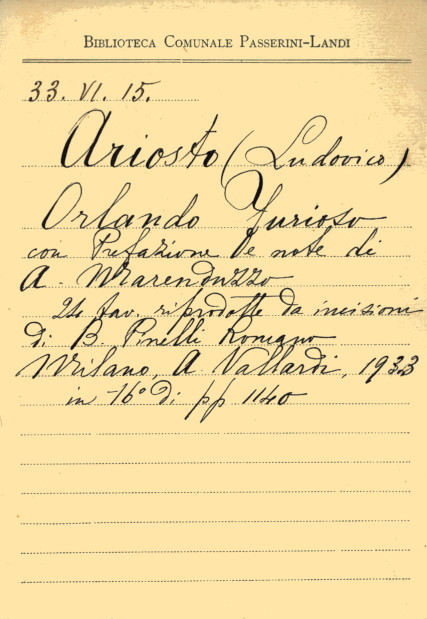 BIBLIOTECA COMUNALE PASSERINI-LANDI
33. VI. 15.
Ariosto (Ludovico)
Orlando Furioso
con Prefazione e note di
A. Marenduzzo
24 tav. riprodotte da incisioni
di B. Pinelli Romano
Milano, A. Vallardi, 1933
in-16° di pp 1140